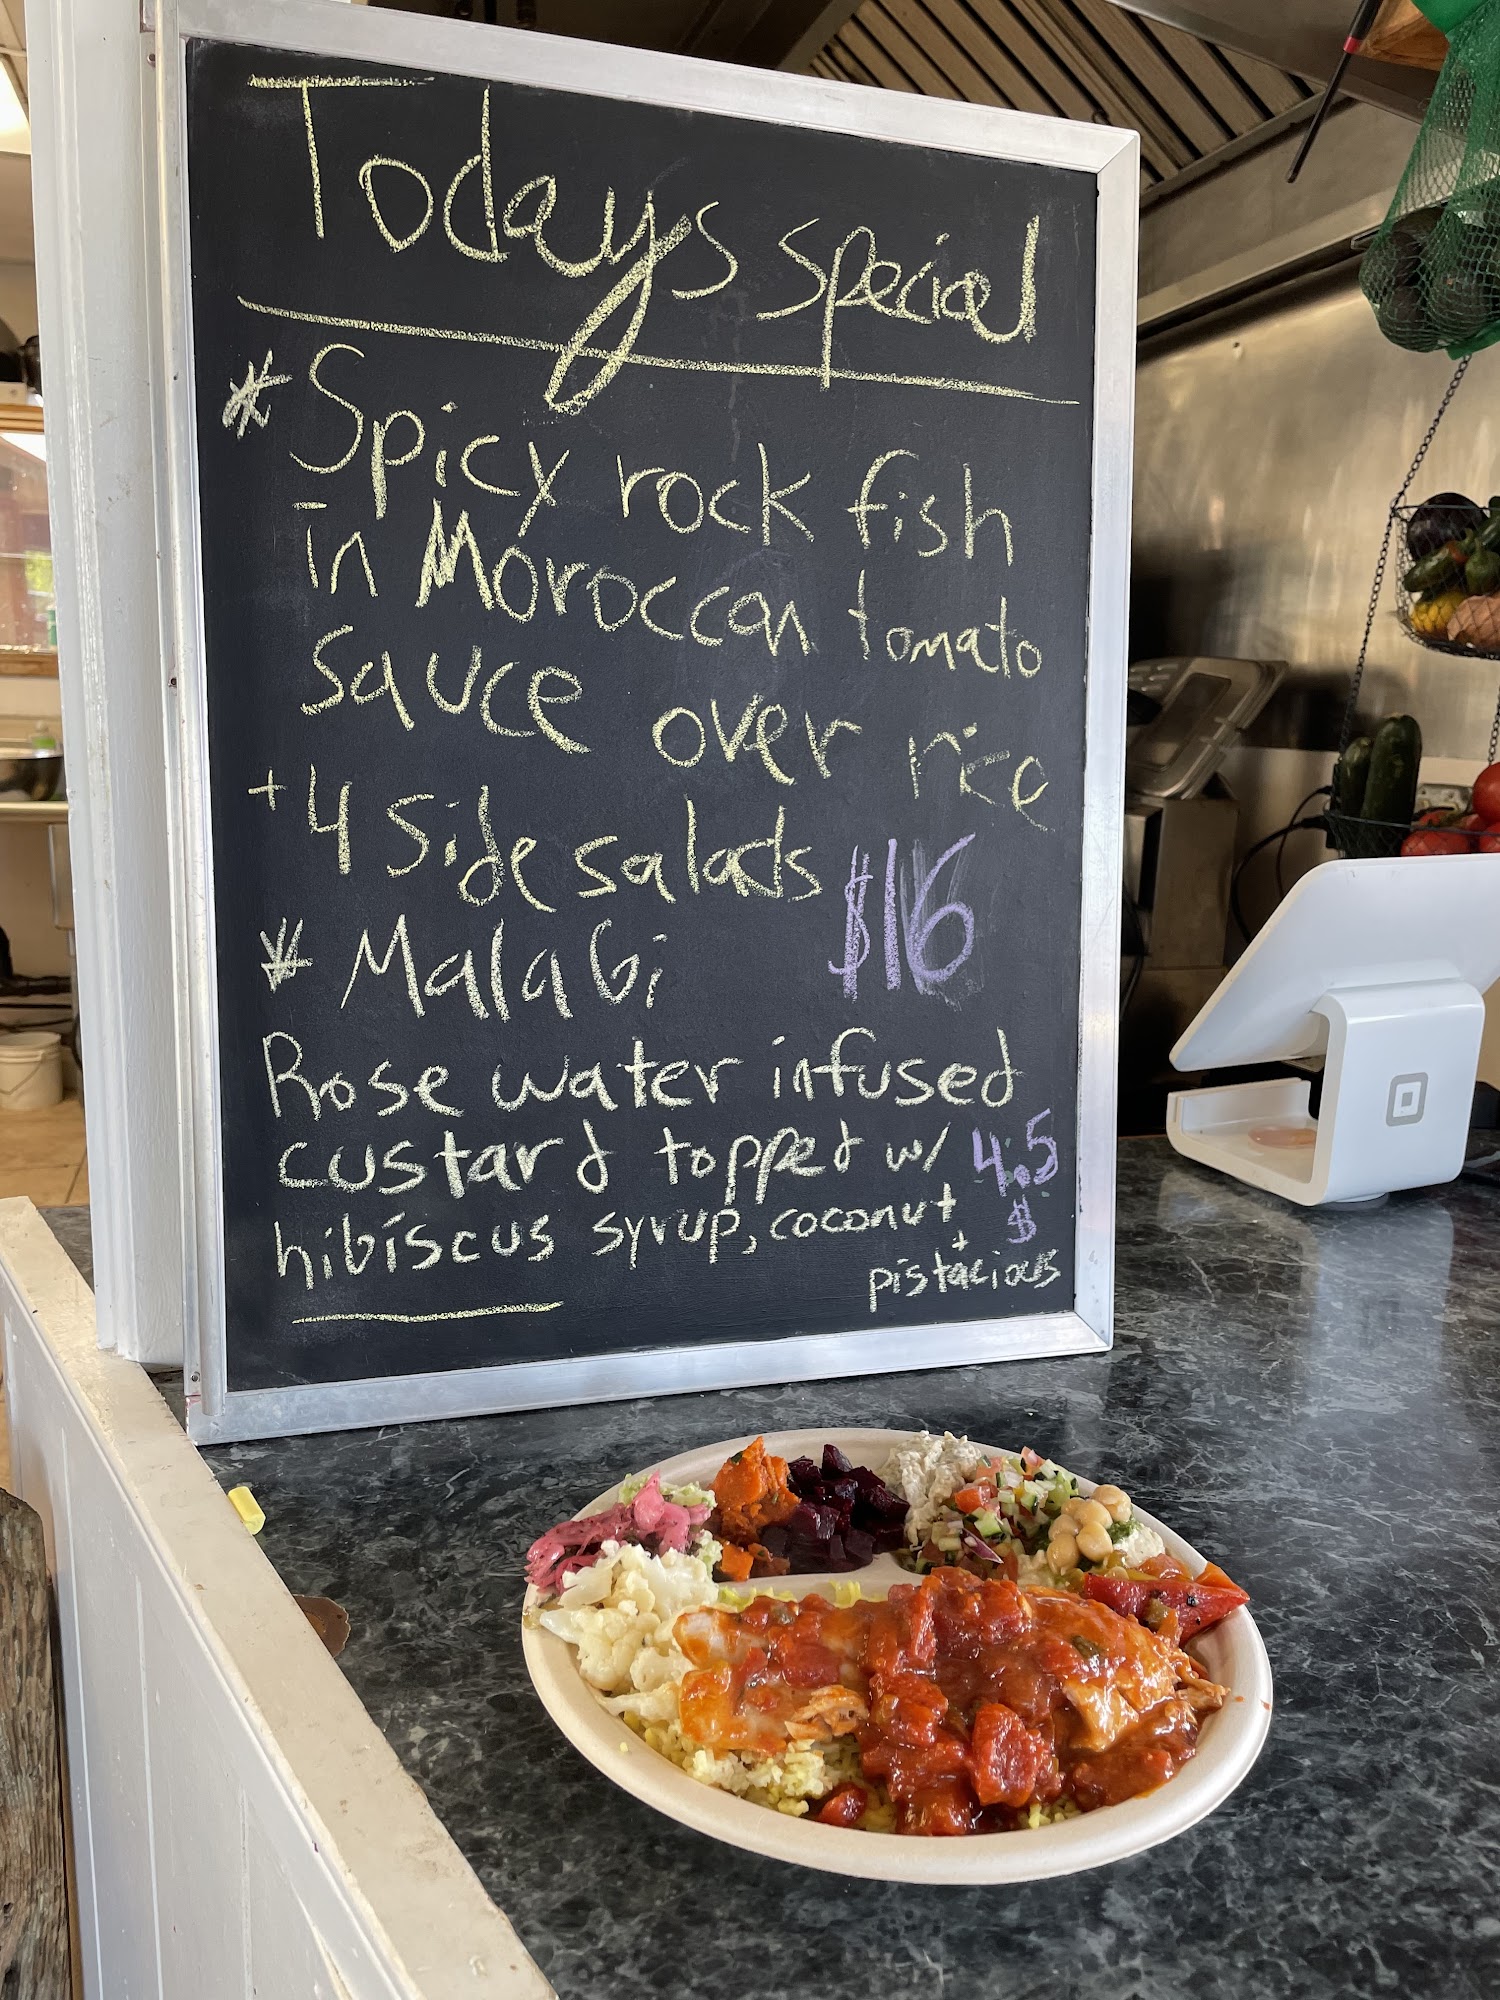 Todays special
* Spicy rock fish
in Moroccan tomato
Sauce over rice
+ 4 side salads $16
* Malabi
Rose water infused
custard topped w/ 4.5
hibiscus syrup, coconut $
+
pistacious